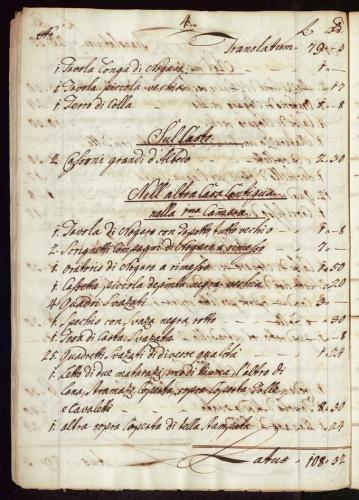 4.
Translatum 79 - 3
1. Tavola longa di Nogara - 1 -
1. Tavola piccola vechia - - 17
1. Ferro di Colla - 1 - 8
Sul Casto
2. Cassoni grandi d'Albeo - 2 - 30
Nell altra Casa Contigua
nella pma Camera
1. Tavola di Nogaro con tutto vechio - 1 - 8
2. Compagni di Nogara a rimesso 7 -
1. Oratorio di Nogaro a rimesso - 1 - 50
1. Casetta piccola depinta negra vechia - 20
4. Quadri Svazati - 3 -
1. Spechio con Svaza negra rotto - - 30
1. di Carta Svazata - - 8
25. Quadretti Svazati di diverse qualità - 1 - 24
1. Letto di due matarazi, un di lana, l'altro di
Lana, Stramazo, Coperta, sopra Coperta
e Cavaleti - 8 - 30
1. altra sopra Coperta di tella stampata - 1 - 24
Latus - 108 - 32